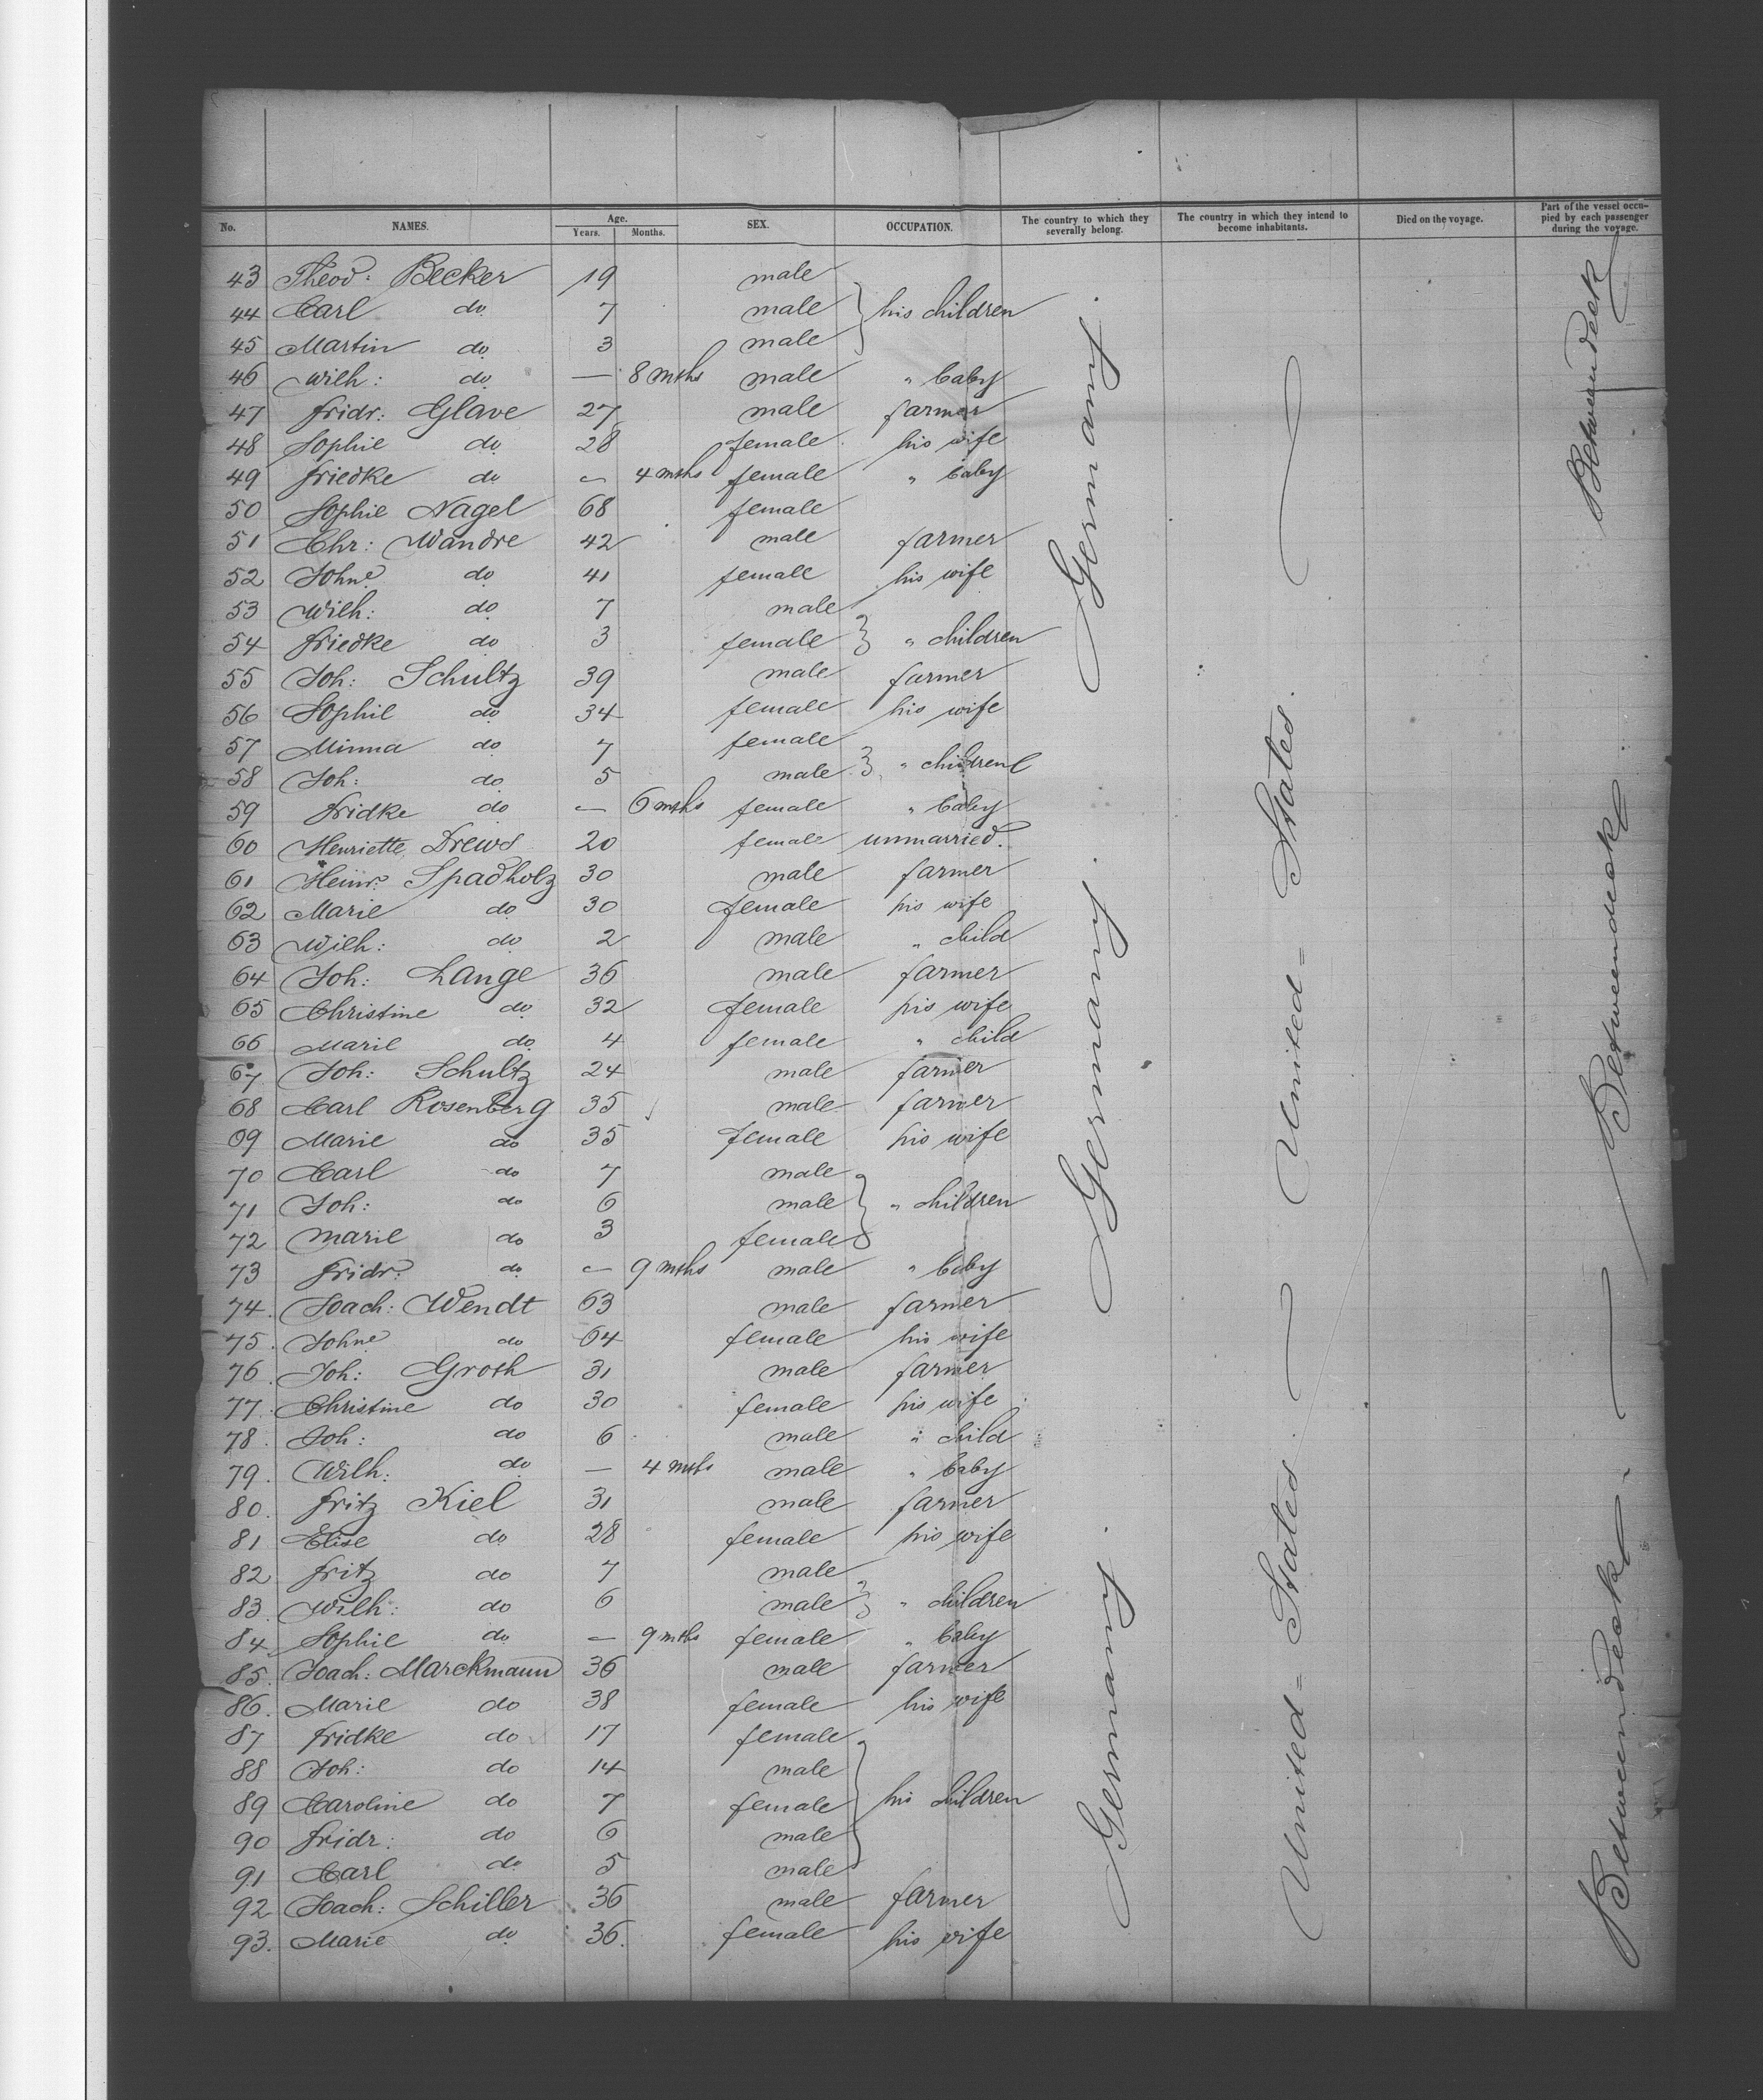 No. NAMES. Age. Years. Months. SEX. OCCUPATION. The country to which they severally belong. The country in which they intend to become inhabitants. Died on the voyage. Part of the vessel occupied by each passenger during the voyage.
43 Theod: Becker 19 male
44 Carl do 7 male } his children
45 Martin do 3 male
46 Wilh: do — 8 mths male " baby
47 Fridr: Glave 27 male farmer
48 Sophie do 28 female his wife
49 Friedke do — 4 mths female " baby
50 Sophie Nagel 68 female
51 Chr: Wandre 42 male farmer
52 Johne do 41 female his wife
53 Wilh: do 7 male
54 Friedke do 3 female } " children
55 Joh: Schultz 39 male farmer
56 Sophie do 34 female his wife
57 Minna do 7 female
58 Joh: do 5 male } " children
59 Fridke do — 6 mths female " baby
60 Henriette Drews 20 female unmarried.
61 Heinr. Spadholz 30 male farmer
62 Marie do 30 female his wife
63 Wilh: do 2 male " child
64 Joh: Lange 36 male farmer
65 Christine do 32 female his wife
66 Marie do 4 female " child
67 Joh: Schultz 24 male farmer
68 Carl Rosenberg 35 male farmer
69 Marie do 35 female his wife
70 Carl do 7 male
71 Joh: do 6 male } " children
72 Marie do 3 female
73 Fridr: do — 9 mths male " baby
74. Joach: Wendt 63 male farmer
75. Johne do 64 female his wife
76. Joh: Groth 31 male farmer
77. Christine do 30 female his wife
78. Joh: do 6 male " child
79. Wilh: do — 4 mths male " baby
80. Fritz Kiel 31 male farmer
81 Elise do 28 female his wife
82 Fritz do 7 male
83. Wilh: do 6 male } " children
84 Sophie do — 9 mths female " baby
85. Joach: Marckmann 36 male farmer
86. Marie do 38 female his wife
87 Fridke do 17 female
88 Joh: do 14 male
89 Caroline do 7 female } his children
90 Fridr: do 6 male
91 Carl do 5 male
92 Joach: Schiller 36 male farmer
93. Marie do 36. female his wife
Germany.
Germany.
Germany.
United = States.
United = States.
Betweendeck
Betweendeck.
Betweendeck.